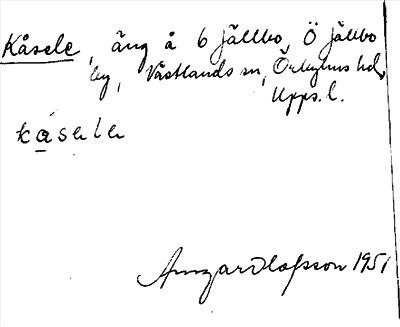 Kåsele, äng å 6 Jällbo, Ö Jällbo
by, Västlands sn, Örbyhus hd,
Upps. l.
kåsele
Olofsson 1951